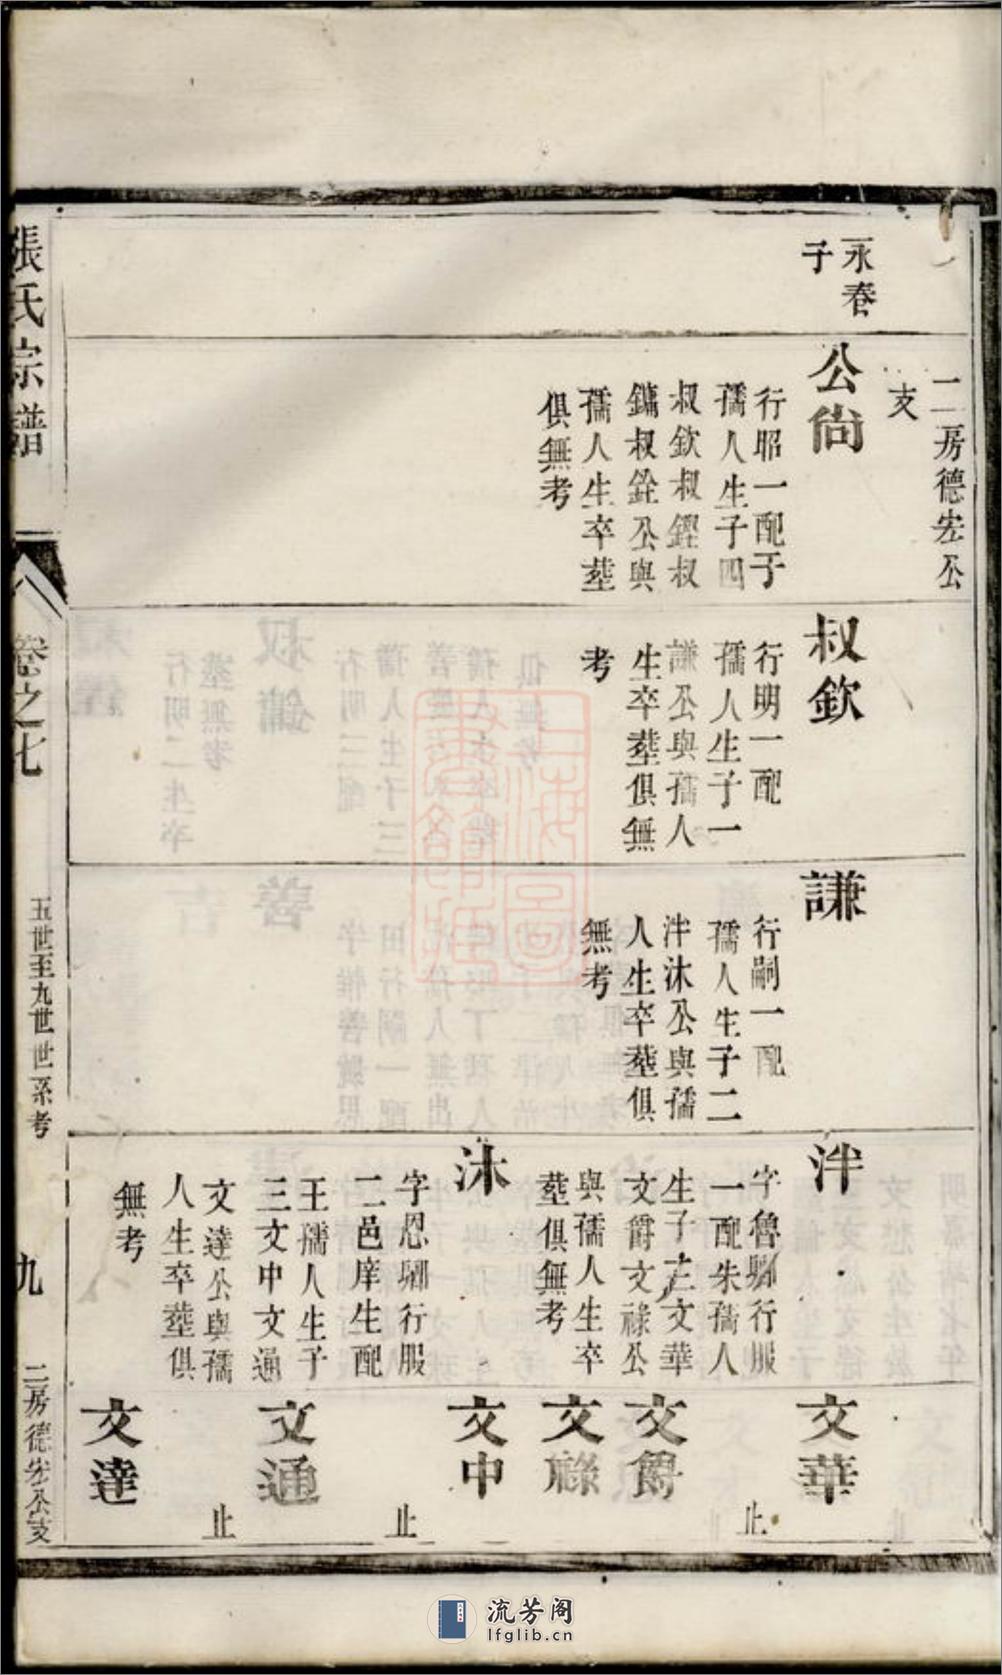 二房德宏公
支
永春
子
公尙
行昭一配于
孺人生子四
叔欽叔鏗叔
鏞叔銓公與
孺人生卒塟
俱無考
叔欽
行明一配
孺人生子一
謙公與孺人
生卒塟俱無
考
謙
行嗣一配
孺人生子二
泮沐公與孺
人生卒塟俱
無考
泮
字魯卿行服
一配朱孺人
生子三文華
文爵文祿公
與孺人生卒
塟俱無考
沐
字恩卿行服
二邑庠生配
王孺人生子
三文中文通
文達公與孺
人生卒塟俱
無考
文華
止
文爵
文祿
文中
止
文通
止
文達
張氏宗譜
卷之七
五世至九世世系考
九
二房德宏公支
流芳阁
lfglib.cn